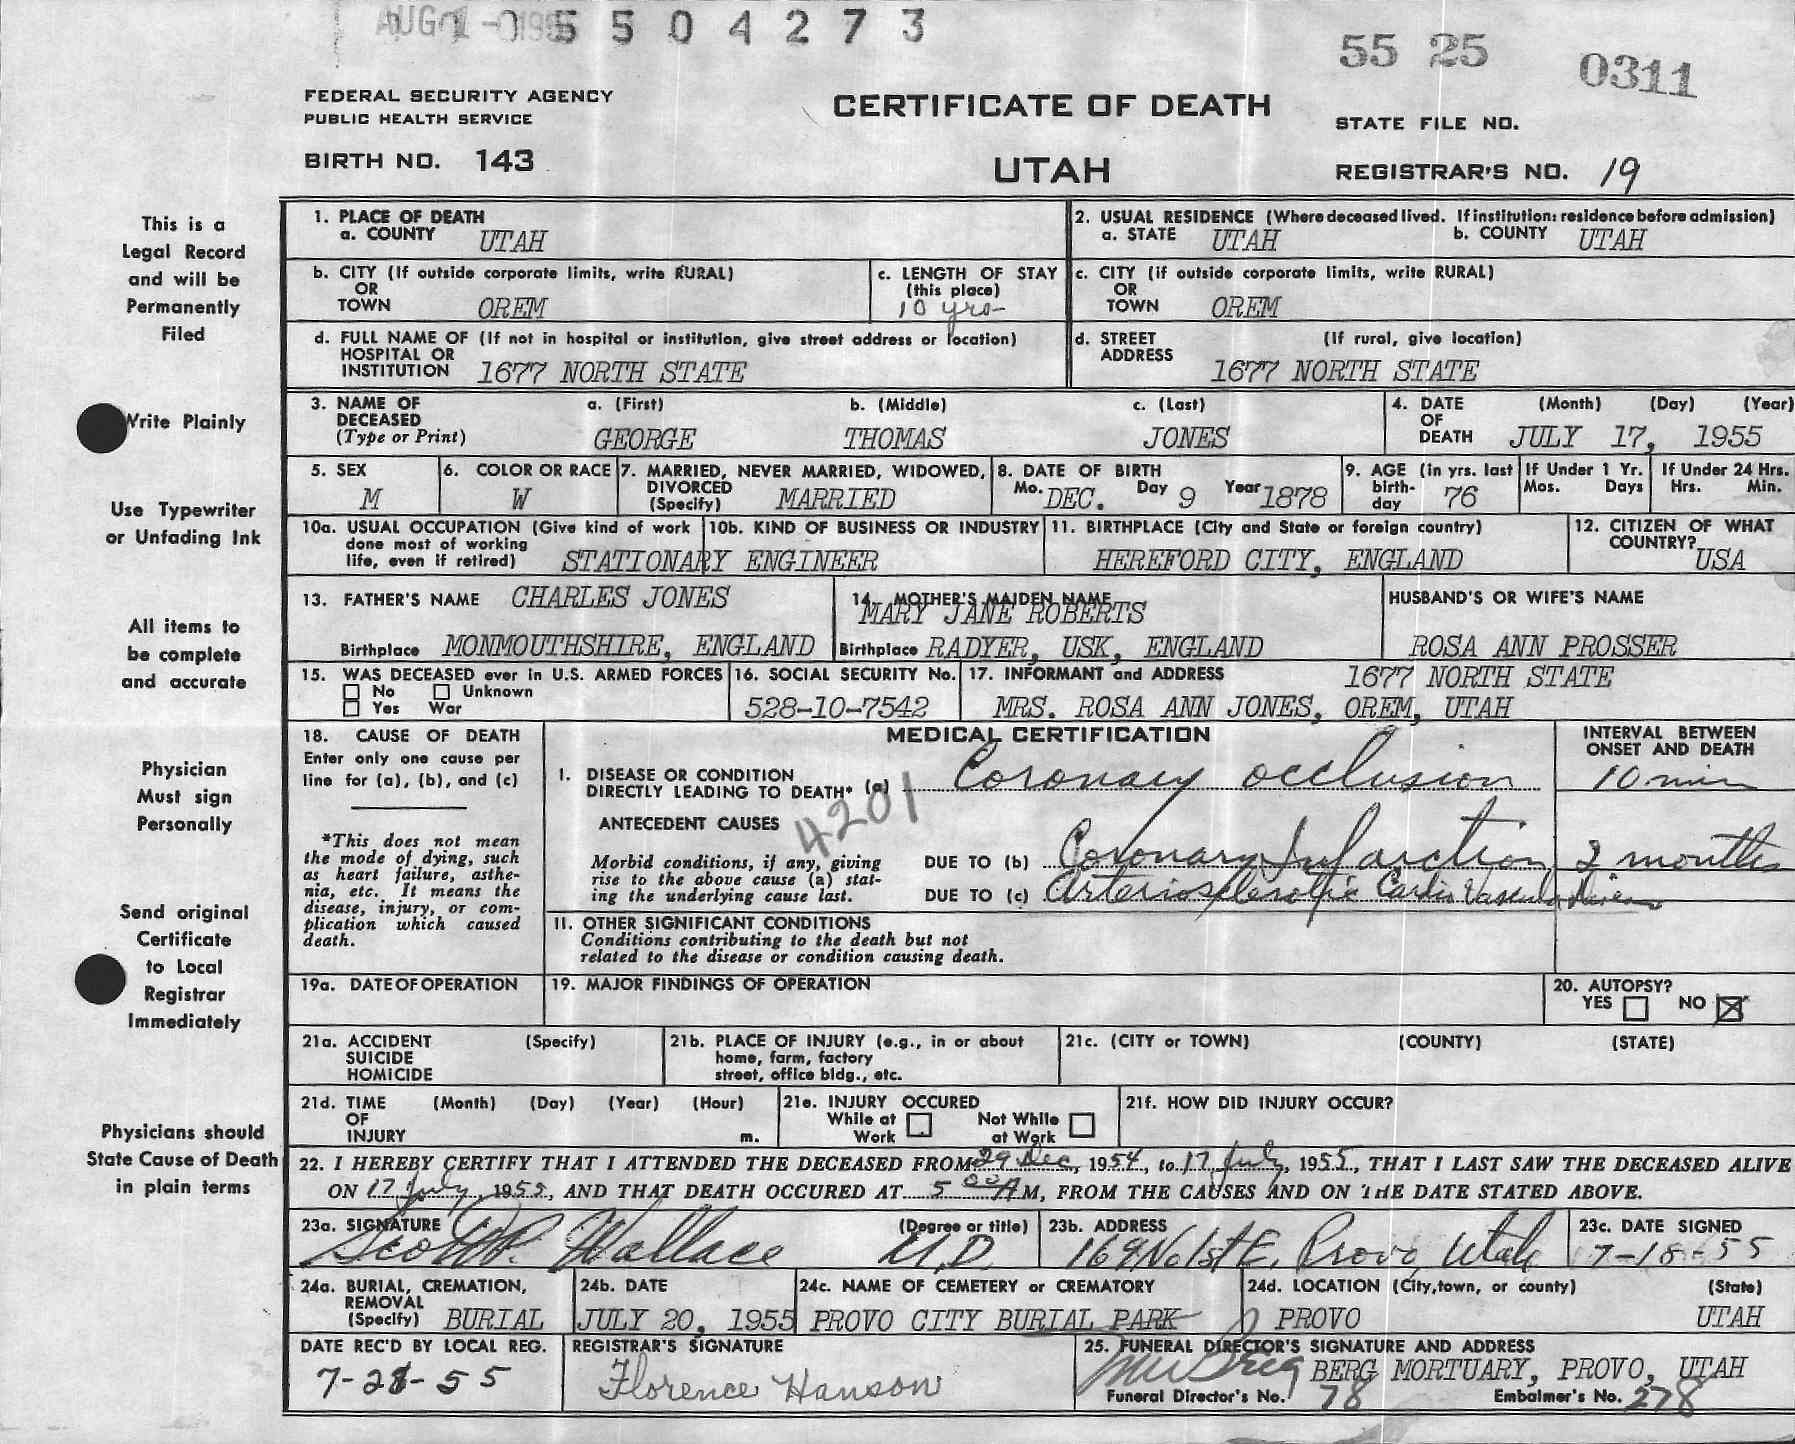 AUG 1 0 195
5 5 0 4 2 7 3
55 25 0311
FEDERAL SECURITY AGENCY
PUBLIC HEALTH SERVICE
BIRTH NO. 143
CERTIFICATE OF DEATH
UTAH
STATE FILE NO.
REGISTRAR'S NO. 19
This is a
Legal Record
and will be
Permanently
Filed
Write Plainly
Use Typewriter
or Unfading Ink
All items to
be complete
and accurate
Physician
Must sign
Personally
Send original
Certificate
to Local
Registrar
Immediately
Physicians should
State Cause of Death
in plain terms
1. PLACE OF DEATH
a. COUNTY UTAH
2. USUAL RESIDENCE (Where deceased lived. If institution: residence before admission)
a. STATE UTAH b. COUNTY UTAH
b. CITY (If outside corporate limits, write RURAL)
OR
TOWN OREM
c. LENGTH OF STAY
(this place)
10 yrs-
c. CITY (if outside corporate limits, write RURAL)
OR
TOWN OREM
d. FULL NAME OF (If not in hospital or institution, give street address or location)
HOSPITAL OR
INSTITUTION 1677 NORTH STATE
d. STREET (If rural, give location)
ADDRESS
1677 NORTH STATE
3. NAME OF a. (First) b. (Middle) c. (Last)
DECEASED
(Type or Print) GEORGE THOMAS JONES
4. DATE (Month) (Day) (Year)
OF
DEATH JULY 17, 1955
5. SEX
M
6. COLOR OR RACE
W
7. MARRIED, NEVER MARRIED, WIDOWED,
DIVORCED
(Specify) MARRIED
8. DATE OF BIRTH
Mo. DEC. Day 9 Year 1878
9. AGE (in yrs. last
birth-
day 76
If Under 1 Yr.
Mos. Days
If Under 24 Hrs.
Hrs. Min.
10a. USUAL OCCUPATION (Give kind of work
done most of working
life, even if retired) STATIONARY ENGINEER
10b. KIND OF BUSINESS OR INDUSTRY
11. BIRTHPLACE (City and State or foreign country)
HEREFORD CITY, ENGLAND
12. CITIZEN OF WHAT
COUNTRY?
USA
13. FATHER'S NAME CHARLES JONES
Birthplace MONMOUTHSHIRE, ENGLAND
14. MOTHER'S MAIDEN NAME
MARY JANE ROBERTS
Birthplace RADYER, USK, ENGLAND
HUSBAND'S OR WIFE'S NAME
ROSA ANN PROSSER
15. WAS DECEASED ever in U.S. ARMED FORCES
No Unknown
Yes War
16. SOCIAL SECURITY No.
528-10-7542
17. INFORMANT and ADDRESS 1677 NORTH STATE
MRS. ROSA ANN JONES, OREM, UTAH
18. CAUSE OF DEATH
Enter only one cause per
line for (a), (b), and (c)
*This does not mean
the mode of dying, such
as heart failure, asthe-
nia, etc. It means the
disease, injury, or com-
plication which caused
death.
MEDICAL CERTIFICATION
INTERVAL BETWEEN
ONSET AND DEATH
I. DISEASE OR CONDITION
DIRECTLY LEADING TO DEATH* (a) Coronary occlusion 10 min
4201
ANTECEDENT CAUSES
Morbid conditions, if any, giving
rise to the above cause (a) stat-
ing the underlying cause last.
DUE TO (b) Coronary Infarction 2 months
DUE TO (c) Arteriosclerotic Cardio Vascular Disease
11. OTHER SIGNIFICANT CONDITIONS
Conditions contributing to the death but not
related to the disease or condition causing death.
19a. DATE OF OPERATION
19. MAJOR FINDINGS OF OPERATION
20. AUTOPSY?
YES NO
21a. ACCIDENT (Specify)
SUICIDE
HOMICIDE
21b. PLACE OF INJURY (e.g., in or about
home, farm, factory
street, office bldg., etc.
21c. (CITY or TOWN) (COUNTY) (STATE)
21d. TIME (Month) (Day) (Year) (Hour)
OF
INJURY m.
21e. INJURY OCCURED
While at Not While
Work at Work
21f. HOW DID INJURY OCCUR?
22. I HEREBY CERTIFY THAT I ATTENDED THE DECEASED FROM 29 Dec, 1954, to 17 July, 1955, THAT I LAST SAW THE DECEASED ALIVE
ON 17 July, 1955, AND THAT DEATH OCCURED AT 5 00 AM, FROM THE CAUSES AND ON THE DATE STATED ABOVE.
23a. SIGNATURE (Degree or title)
Scott P. Wallace M.D.
23b. ADDRESS
169 No 1st E. Provo, Utah
23c. DATE SIGNED
7-18-55
24a. BURIAL, CREMATION,
REMOVAL
(Specify) BURIAL
24b. DATE
JULY 20, 1955
24c. NAME OF CEMETERY or CREMATORY
PROVO CITY BURIAL PARK
24d. LOCATION (City, town, or county) (State)
PROVO UTAH
DATE REC'D BY LOCAL REG.
7-28-55
REGISTRAR'S SIGNATURE
Florence Hanson
25. FUNERAL DIRECTOR'S SIGNATURE AND ADDRESS
Berg BERG MORTUARY, PROVO, UTAH
Funeral Director's No. 78 Embalmer's No. 278